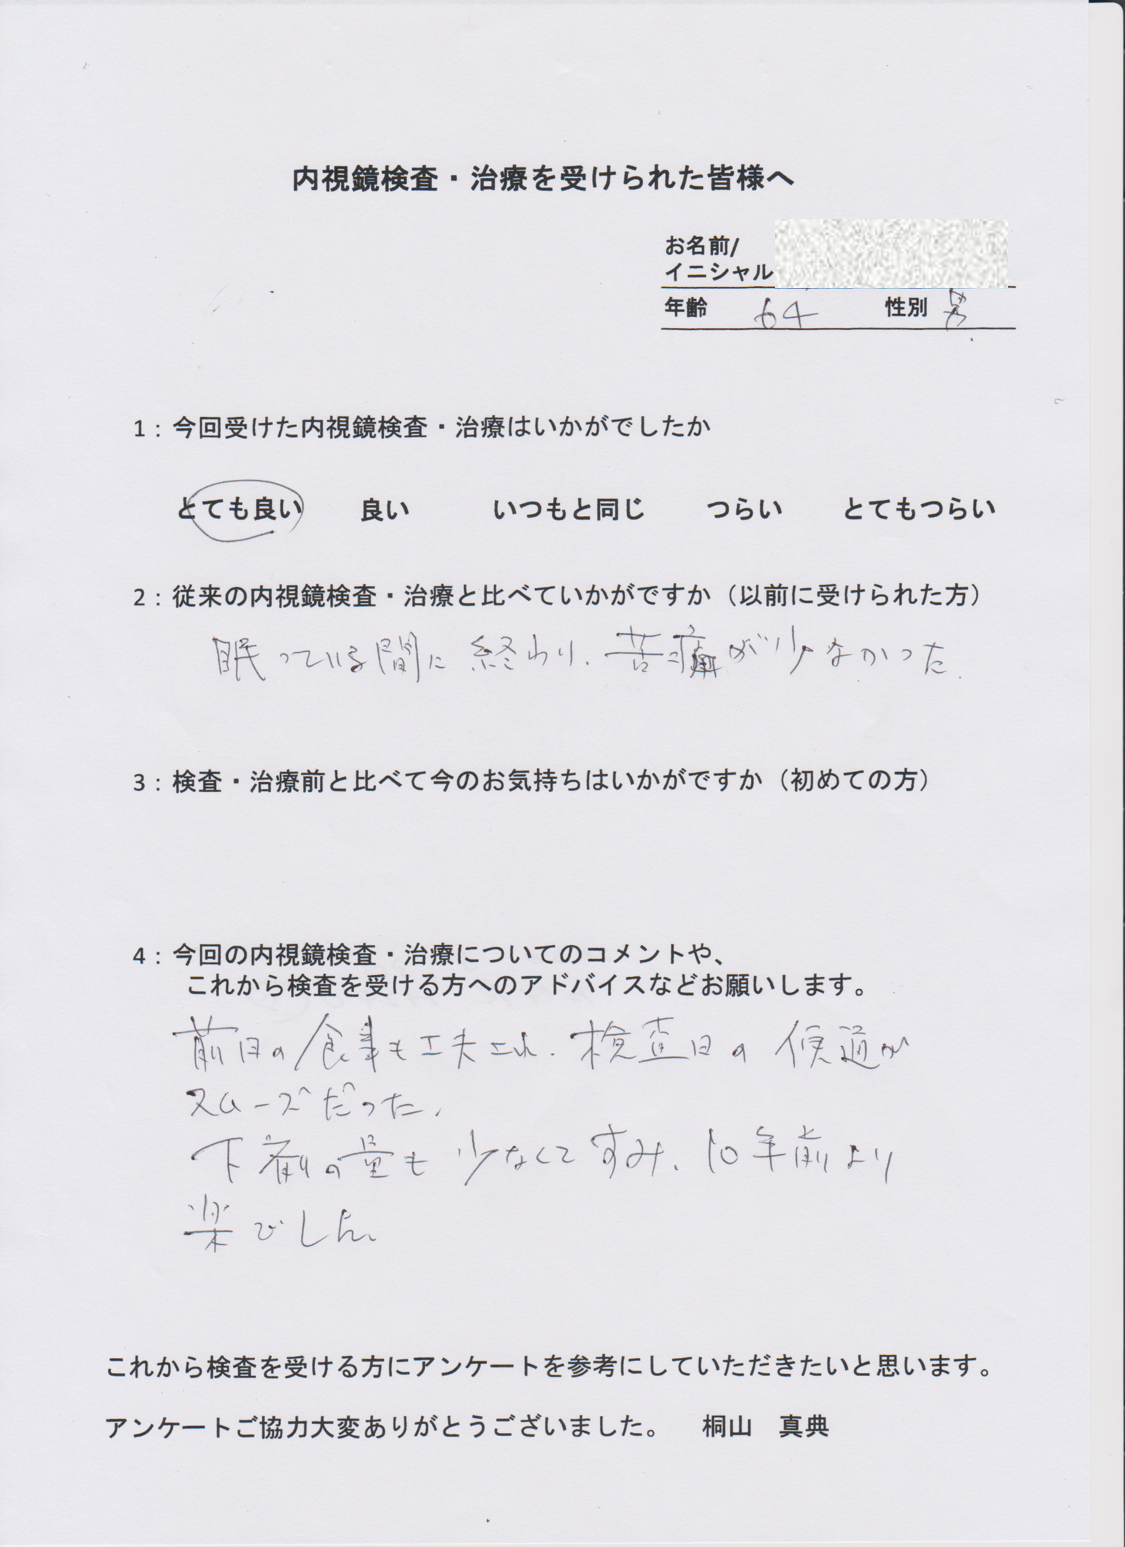 内視鏡検査・治療を受けられた皆様へ
お名前/
イニシャル
年齢 64 性別 男
1：今回受けた内視鏡検査・治療はいかがでしたか
とても良い 良い いつもと同じ つらい とてもつらい
2：従来の内視鏡検査・治療と比べていかがですか（以前に受けられた方）
眠っている間に終わり、苦痛が少なかった.
3：検査・治療前と比べて今のお気持ちはいかがですか（初めての方）
4：今回の内視鏡検査・治療についてのコメントや、
これから検査を受ける方へのアドバイスなどお願いします。
前日の食事も工夫され、検査日の便通が
スムーズだった。
下剤の量も少なくてすみ、10年前より
楽でした。
これから検査を受ける方にアンケートを参考にしていただきたいと思います。
アンケートご協力大変ありがとうございました。 桐山 真典